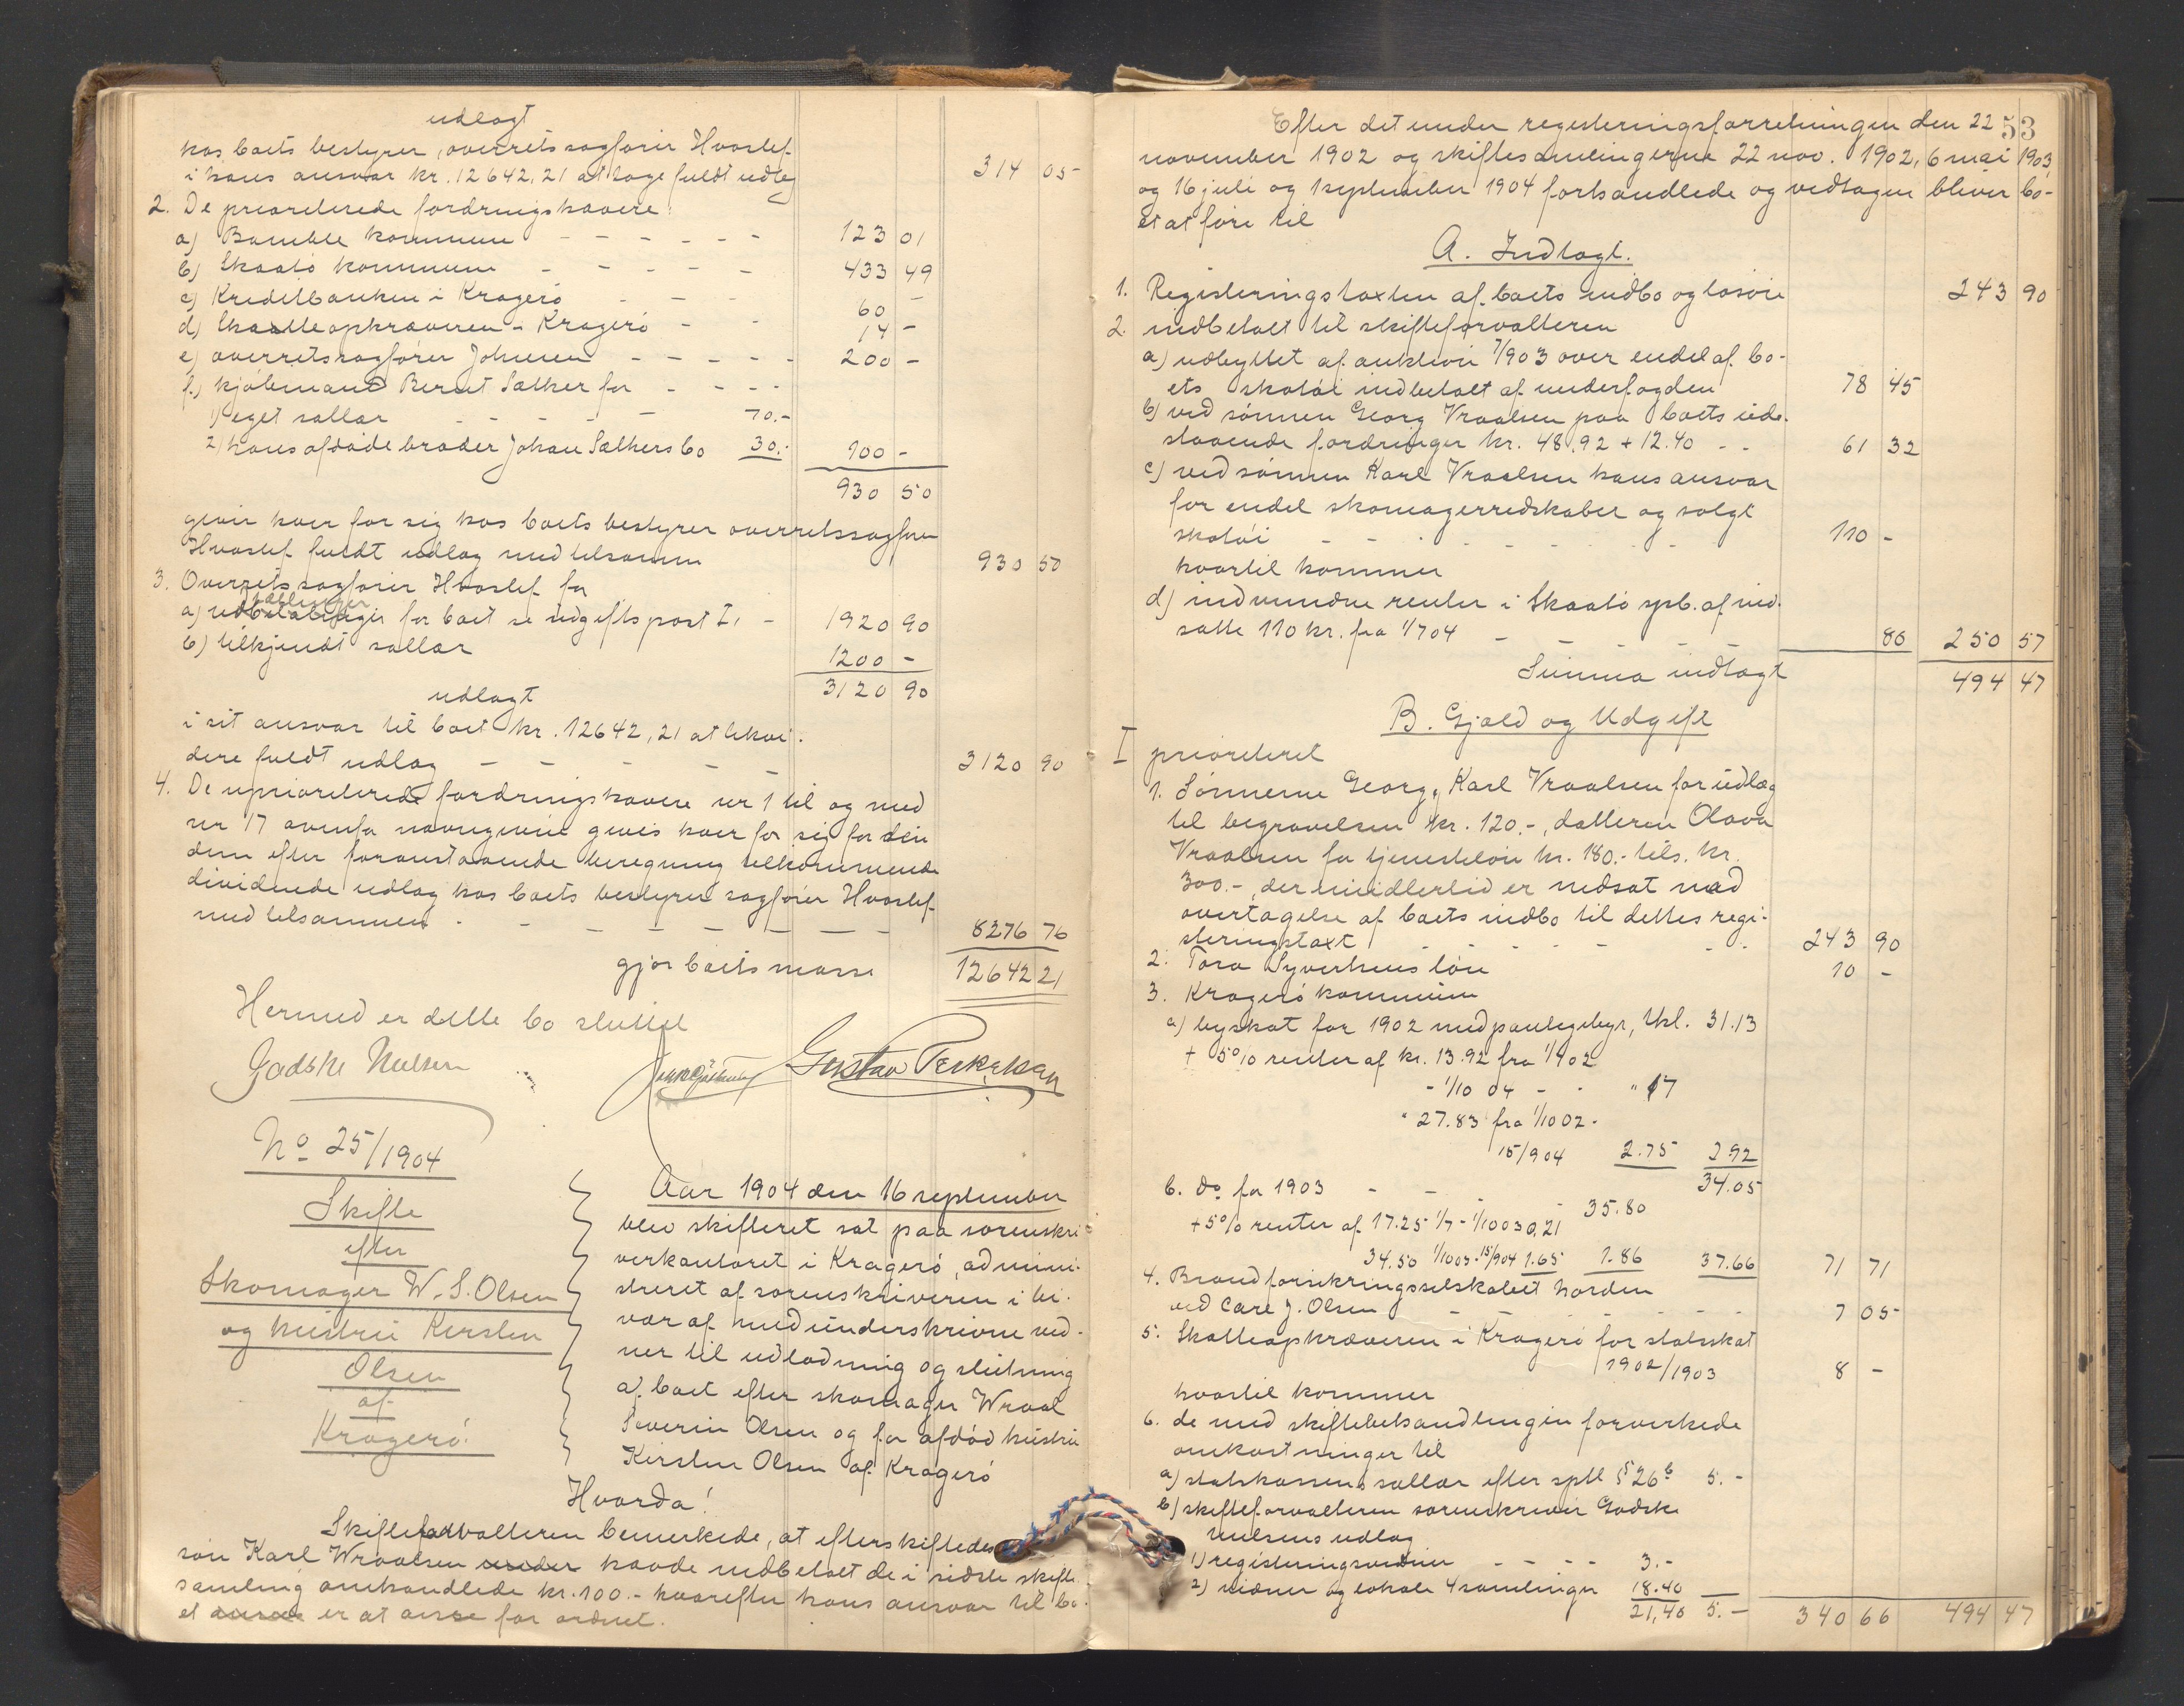 udlagt
hos boets bestyrer, overretssagfører Hvoslef
i hans ansvar kr. 12642,21 at tage fuldt udlæg 314 05
2. De prioriterede fordringshavere:
a) Bamble kommune - - - - - - 123 01
b) Skaatø kommune - - - - - 433 49
c) Kreditbanken i Kragerø - - - 60 -
d) Skatteopkræveren - Kragerø - - 14 -
e) overretssagfører Johnsen - - - - - 200 -
f) kjøbmand Bernt Sælker for - - - -
1) eget sallær - - - - 70.-
2) hans afdøde broder Johan Sælkers bo 30.- 100 -
930 50
giver hver for sig hos boets bestyrer overretssagfører
Hvoslef fuldt udlæg med tilsammen 930 50
3. Overretssagfører Hvoslef for
a) udbetalinger for boet se udgiftspost I, - 1920 90
b) tilkjendt sallær 1200 -
3120 90
udlagt
i sit ansvar til boet kr. 12642,21 at likvi-
dere fuldt udlæg - - - - - 3120 90
4. De uprioriterede fordringshavere nr 1 til og med
nr 17 ovenfor navngivne gives hver for sig for den
dem efter foranstaaende beregning tilkommende
dividende udlæg hos boets bestyrer sagfører Hvoslef
med tilsammen - - - - - - - 8276 76
gjør boets masse 12642 21
Hermed er dette bo sluttet
Godske Nielsen
Gustav Terkelsen
No 25/1904
Skifte
efter
Skomager W. S. Olsen
og hustru Kirsten
Olsen
af
Kragerø.
Aar 1904 den 16 september
blev skifteret sat paa sorenskri-
verkontoret i Kragerø, admini-
streret af sorenskriveren i bi-
vær af medunderskrivne vid-
ner til udlodning og slutning
af boet efter skomager Wraal
Severin Olsen og før afdød hustru
Kirsten Olsen af Kragerø
Hvorda!
Skifteforvalteren bemerkede, at efterskiftedes
søn Karl Wraalsen havde indbetalt de i sidste skifte-
samling omhandlede kr. 100.- hvorefter hans ansvar til bo-
et er at anse for ordnet.
53
Efter det under registeringsforretningen den 22
november 1902 og skiftesamlingerne 22 nov. 1902, 6 mai 1903,
og 16 juli og 1 september 1904 forhandlede og vedtagne bliver bo-
et at føre til
A. Indtægt.
1. Registeringstaxten af boets indbo og løsøre 243 90
2. indbetalt til skifteforvalteren
a) udbyttet af auktion 7/903 over endel af bo-
ets skotøi indbetalt af underfogden 78 45
b) ved sønnen Georg Vraalsen paa boets ude-
staaende fordringer kr. 48.92 + 12.40 - - 61 32
c) ved sønnen Karl Vraalsen hans ansvar
for endel skomagerredskaber og solgt
skotøi - - - - - - - 110 -
hvortil kommer
d) indvundne renter i Skaatø spb. af ind-
satte 110 kr. fra 1/7 04 - - - - 80 250 57
Summa indtægt 494 47
B. Gjæld og Udgift
I prioriteret
1. Sønnerne Georg, Karl Vraalsen for udlæg
til begravelsen kr. 120.-, datteren Olava
Vraalsen for tjenesteløn kr. 180.- tils. kr.
300.-, der imidlertid er nedsat mod
overtagelse af boets indbo til dettes regi-
steringstaxt - - - - - - 243 90
2. Tora Syvertsens løn 10 -
3. Kragerø kommune
a) byskat for 1902 med paalegsgebyr, Ukl. 31.13
+ 5% renter af kr. 13.92 fra 1/4 02
- 1/10 04 - - " 17
" 27.83 fra 1/10 02 -
15/9 04 2.75 2 92
34.05
b. do for 1903 - - - - 35.80
+ 5% renter af 17.25 1/7 - 1/10 03 0,21
34.50 1/10 03 - 15/904 1.65 1.86 37.66 71 71
4. Brandforsikringsselskabet Norden
ved Carl J. Olsen - - - - - - 7 05
5. Skatteopkræveren i Kragerø for statsskat
1902/1903 8 -
hvortil kommer
6. de med skiftebehandlingen forvirkede
omkostninger til
a) statskassen, sallær efter sptl § 26 b 5.-
b) skifteforvalteren sorenskriver Godske
Nielsens udlæg
1) registeringsvidner - - - - 3.-
2) vidner og lokale 4 samlinger 18.40
21,40 5.- 340 66 494 47